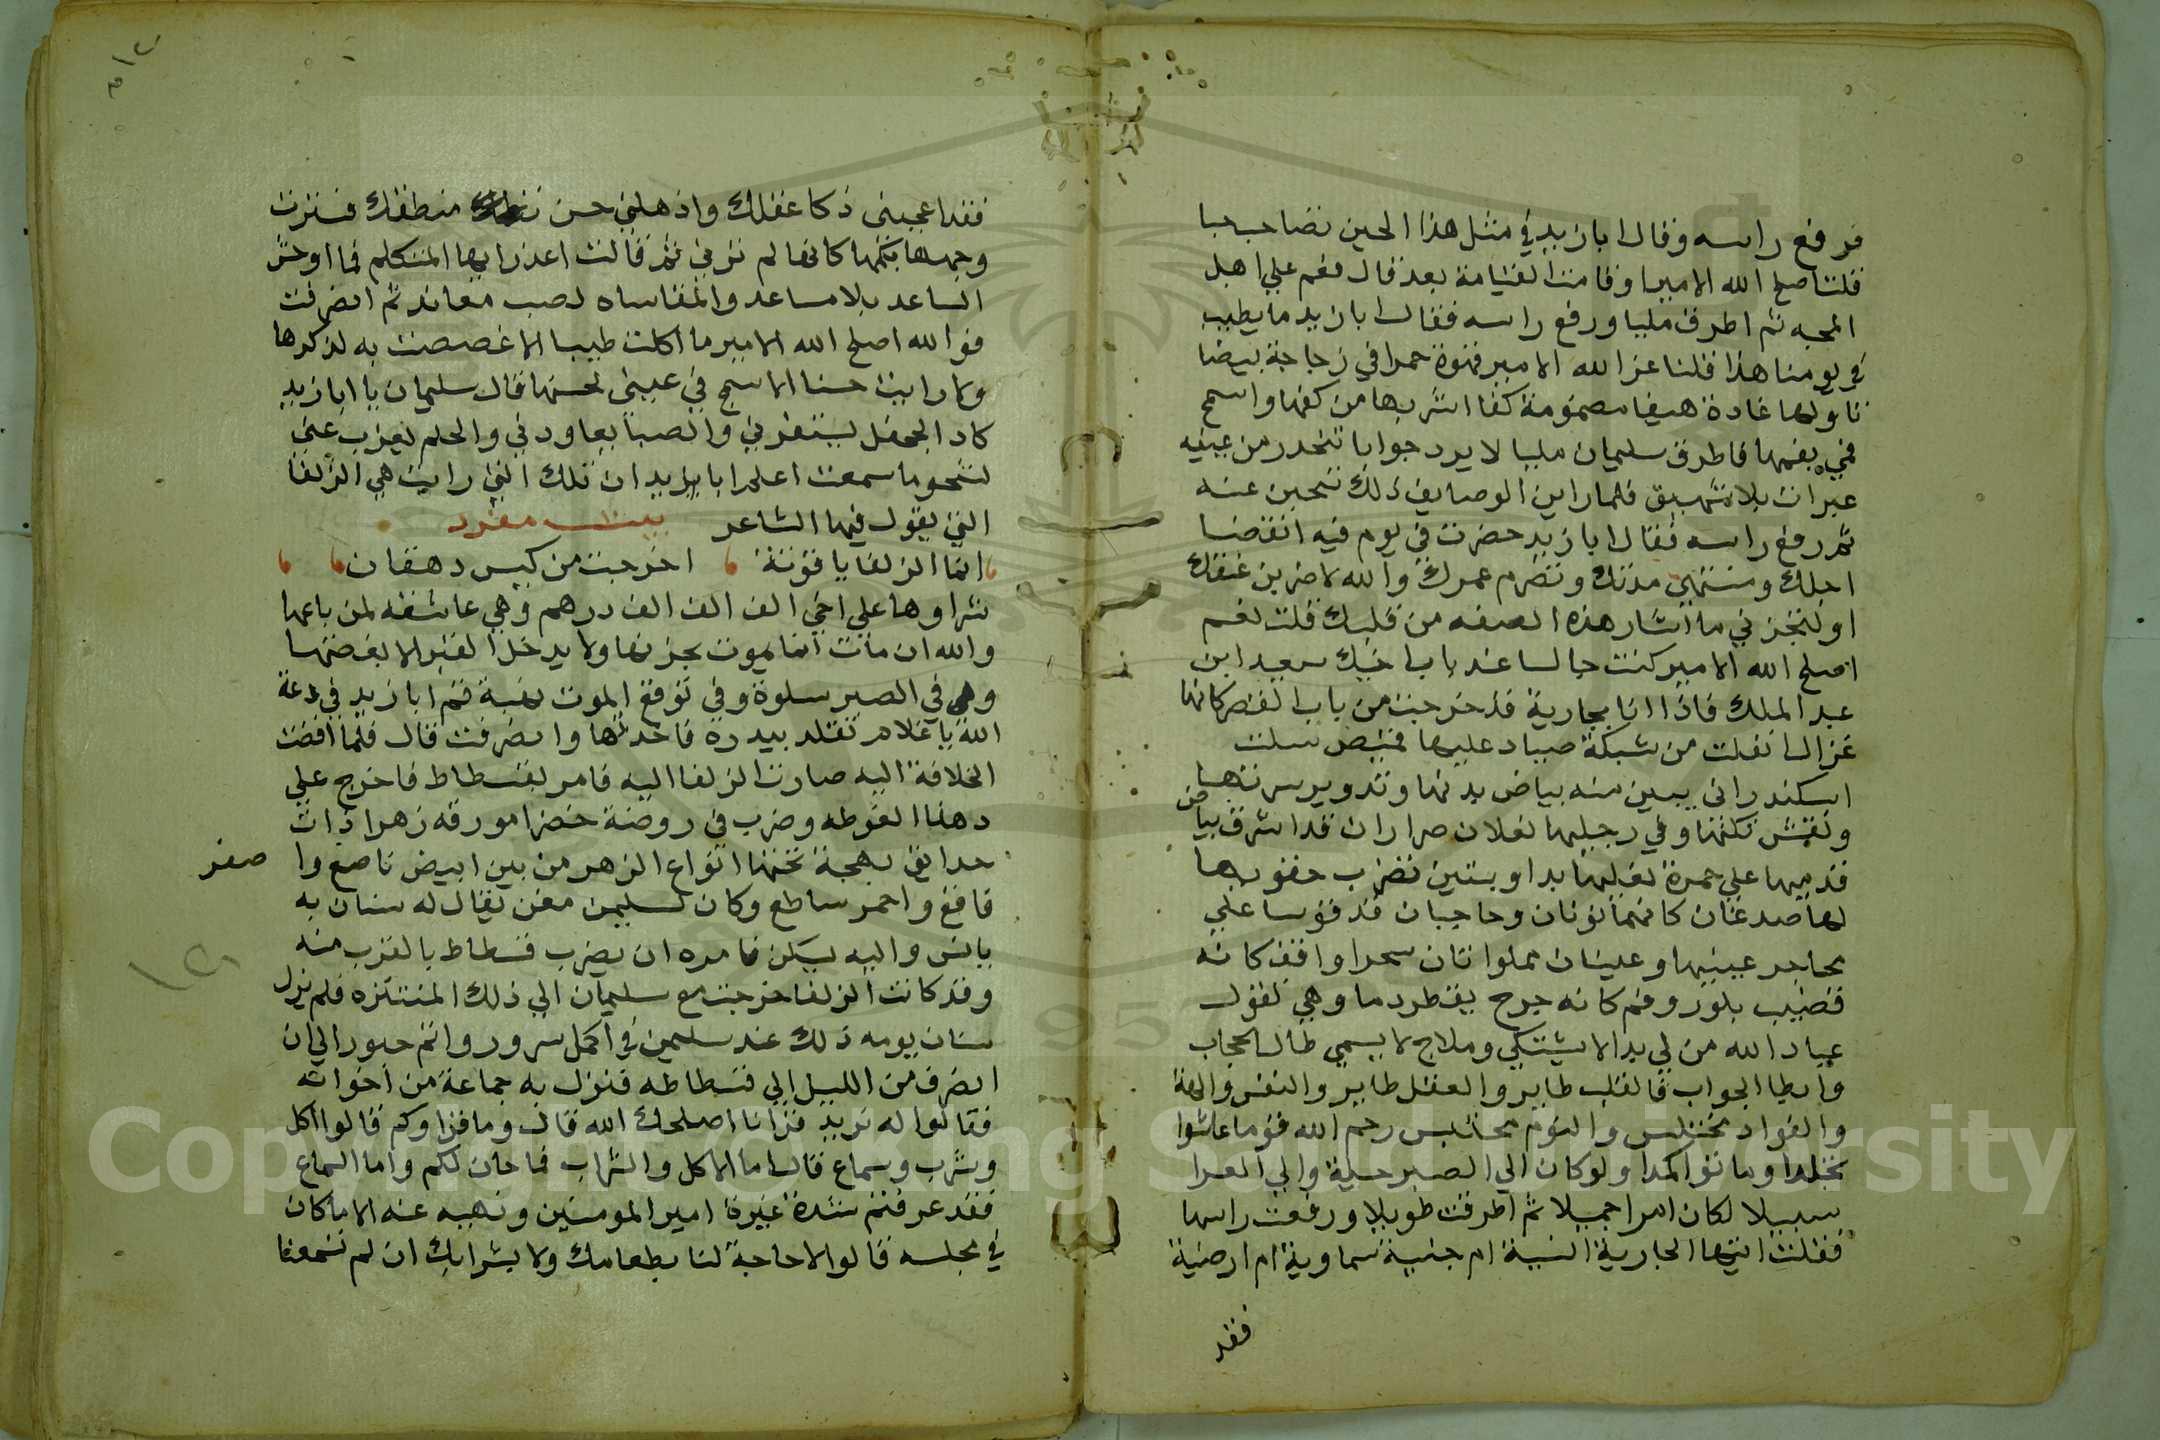 فرفع راسه وقال ابا زيد في مثل هذا الحين تصاحب حبا
فقلت اصلح الله الامير او قامت القيامة بعد قال نعم علي اهل
المحبه ثم اطرق مليا ورفع راسه فقال ابا زيد ما يطيب
في يومنا هذا قلنا عز الله الامير قهوة حمرا في زجاجة بيضا
تناولها غادة هيفا مضمومة لفا اشربها من كفها وامسح
فمي بفمها فاطرق سليمان مليا لا يرد جوابا تنحدر من عينيه
عبرات بلا شهيق فلما راين الوصايف ذلك تنحين عنه
ثم رفع راسه فقال ابا زيد حضرت في يوم فيه انقضا
اجلك ومنتهي مدتك وتصرم عمرك والله لاضربن عنقك
او لتخبرني ما اثار هذه الصفه من قلبك قلت نعم
اصلح الله الامير كنت جالسا عند باب اخيك سعيد ابن
عبد الملك فاذا انا بجارية قد خرجت من باب القصر كانها
غزال انفلت من شبكة صياد عليها قميص سلت
اسكندراني يبين منه بياض بدنها وتدوير سرتها
ونقش تكتها وفي رجليها نعلان صراران قد اشرق بياض
قدميها علي حمرة نعليها بداوبتين تضرب حقويها
لها صدغان كانهما نونان وحاجبان قد قوسا علي
محاجر عينيها وعينان مملواتان سحرا وانف كانه
قضيب بلور وفم كانه جرح يقطر دما وهي تقول
عباد الله من لي بدا لا يشتكي وعلاج لا يسمي طال الحجاب
وابطا الجواب فالقلب طاير والعقل طاير والنفس والهة
والفواد مختلس والنوم محتبس رحم الله قوما عاشوا
تجلدا وماتوا كمدا ولو كان الي الصبر حيلة والي العزا
سبيلا لكان امرا جميلا ثم اطرقت طويلا ورفعت راسها
فقلت ايتها الجارية انسية ام جنية سماوية ام ارضية
فقد
فقد اعجبني ذكا عقلك واذهلني حسن منطقك فسترت
وجهها بكمها كانها لم ترني ثم قالت اعذر ايها المتكلم فما اوحش
الساعد بلا مساعد والمقاساه لصب معاند ثم انصرفت
فوالله اصلح الله الامير ما اكلت طيبا الا غصصت به لذكرها
ولا رايت حسنا الا سمج في عيني لحسنها قال سليمان يا ابا زيد
كاد الجهل يستفزني والصبا يعاودني والحلم يعزب عني
لشجو ما سمعت اعلم ابا زيد ان تلك التي رايت هي الزلفا
التي يقول فيها الشاعر بيت مفرد
انما الزلفا ياقوتة اخرجت من كيس دهقان
شراوها علي اخي الف الف درهم وهي عاشقه لمن باعها
والله ان مات انما يموت بحزنها ولا يدخل القبر الا بغصتها
وفي الصبر سلوة وفي توقع الموت نهية قم ابا زيد في دعة
الله يا غلام تقلد بيدره فاخذتها وانصرفت قال فلما افضت
الخلافة اليه صارت الزلفا اليه فامر بفسطاط فاخرج علي
دهنا الغوطه وضرب في روضة خضرا مورقه زهرا ذات
حدايق بهجة تحتها انواع الزهر من بين ابيض ناصع وا صفر
فاقع واحمر ساطع وكان لسليمن مغن يقال له سنان به
يانس واليه يسكن فامره ان يضرب فسطاط بالقرب منه
وقد كانت الزلفا خرجت مع سليمان الي ذلك المنتزه فلم يزل
سنان يومه ذلك عند سليمن في اكمل سرور واتم حبور الي ان
انصرف من الليل الي فسطاطه فنزل به جماعة من اخوانه
فقالوا له نريد قرانا اصلحك الله قال وما قراوكم قالوا اكل
وشرب وسماع قال اما الاكل والشراب فمباحان لكم واما السماع
فقد عرفتم شدة غيرة امير المومنين ونهيه عنه الا ما كان
في مجلسه قالوا لا حاجة لنا بطعامك ولا بشرابك ان لم تسمعنا
Copyright © King Saud University